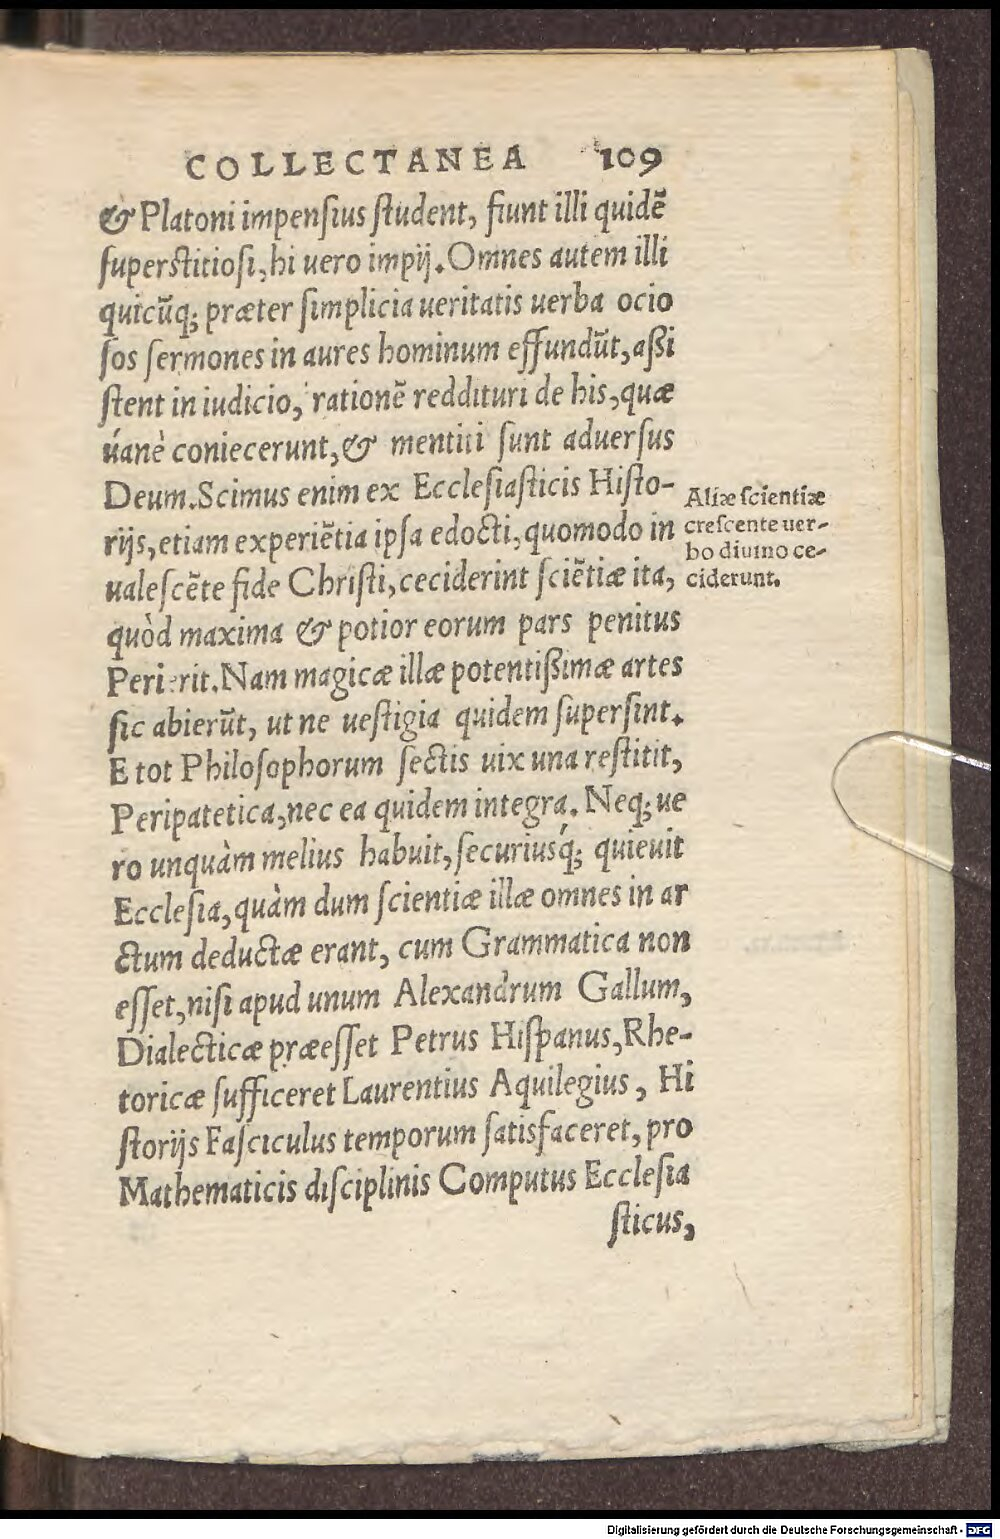 COLLECTANEA 109
& Platoni impensius student, fiunt illi quidē
superstitiosi, hi uero impij. Omnes autem illi
quicūq; præter simplicia ueritatis uerba ocio
sos sermones in aures hominum effundūt, aßi
stent in iudicio, rationē reddituri de his, quæ
uanè coniecerunt, & mentiti sunt aduersus
Deum. Scimus enim ex Ecclesiasticis Histo-
rijs, etiam experiētia ipsa edocti, quomodo in
ualescēte fide Christi, ceciderint sciētiæ ita,
quòd maxima & potior eorum pars penitus
Perierit. Nam magicæ illæ potentißimæ artes
sic abierūt, ut ne uestigia quidem supersint.
E tot Philosophorum sectis uix una restitit,
Peripatetica, nec ea quidem integra. Neq; ue
ro unquàm melius habuit, securiusq́; quieuit
Ecclesia, quàm dum scientiæ illæ omnes in ar
ctum deductæ erant, cum Grammatica non
esset, nisi apud unum Alexandrum Gallum,
Dialecticæ præesset Petrus Hispanus, Rhe-
toricæ sufficeret Laurentius Aquilegius, Hi
storijs Fasciculus temporum satisfaceret, pro
Mathematicis disciplinis Computus Ecclesia
sticus,
Aliæ scientiæ
crescente uer-
bo diuino ce-
ciderunt.
Digitalisierung gefördert durch die Deutsche Forschungsgemeinschaft - DFG